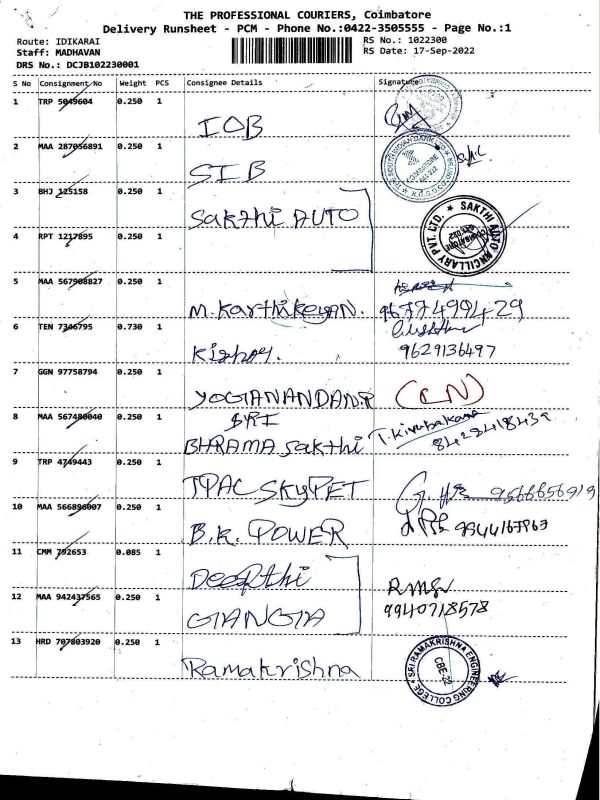 THE PROFESSIONAL COURIERS, Coimbatore
Delivery Runsheet - PCM - Phone No.:0422-3505555 - Page No.:1
Route: IDIKARAI
RS No.: 1022300
Staff: MADHAVAN
RS Date: 17-Sep-2022
DRS No.: DCJB102230001
S No Consignment No Weight PCS Consignee Details Signature
1 TRP 5049604 0.250 1 IOB
2 MAA 287056891 0.250 1 SIB
3 BHJ 125158 0.250 1 Sakthi AUTO
SAKTHI AUTO ANCILLARY PVT. LTD.
4 RPT 1217895 0.250 1
5 MAA 567908827 0.250 1 M. Karthikeyan.
6 TEN 7346795 0.730 1 Kishor.
9629136497
7 GGN 97758794 0.250 1 YOGANANDAN.P
8 MAA 567480040 0.250 1 SRI
BHRAMA Sakthi
9 TRP 4749443 0.250 1 TPAC SKYPET
10 MAA 566898007 0.250 1 B.K. POWER
11 CMM 792653 0.085 1 Deepthi
12 MAA 942437565 0.250 1 GANGA
9940718578
13 HRD 707803920 0.250 1 Ramakrishna
SRI RAMAKRISHNA ENGINEERING COLLEGE
CBE-22